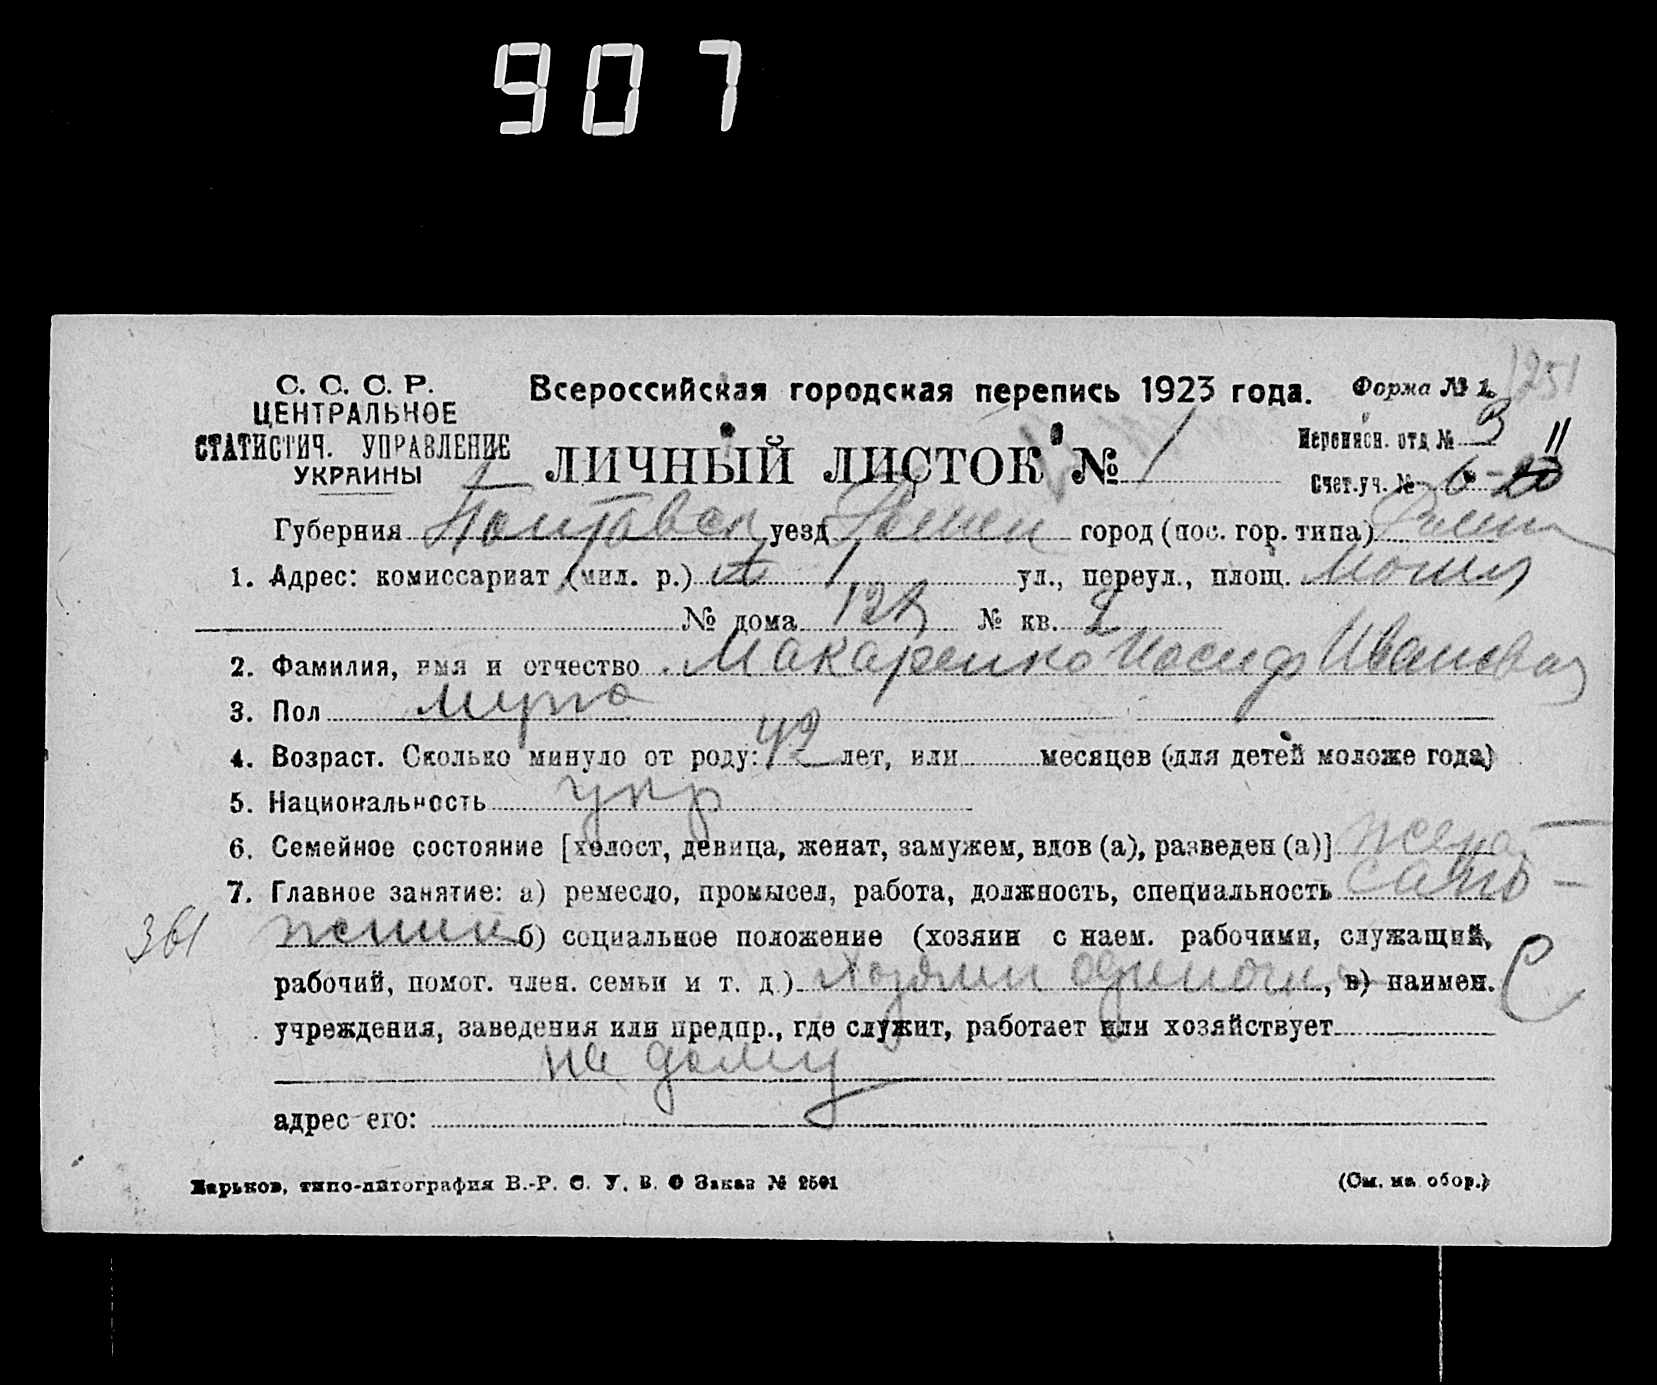 907
1251
С. С. С. Р.
ЦЕНТРАЛЬНОЕ
СТАТИСТИЧ. УПРАВЛЕНИЕ
УКРАИНЫ
Всероссийская городская перепись 1923 года.
Форма № 1.
ЛИЧНЫЙ ЛИСТОК № 1
Переписн. отд № 3
11
Счет.уч. № 6 -
Губерния Полтавск уезд Ромен город (пос. гор. типа) Ромен
1. Адрес: комиссариат (мил. р.) 1 ул., переул., площ.
№ дома № кв.
2. Фамилия, имя и отчество Макаренко Иосиф Иванович
3. Пол мужс
4. Возраст. Сколько минуло от роду: 42 лет, или месяцев (для детей моложе года)
5. Национальность укр
6. Семейное состояние [холост, девица, женат, замужем, вдов (а), разведен (а)] женат
7. Главное занятие: а) ремесло, промысел, работа, должность, специальность сапо-
361 жник б) социальное положение (хозяин с наем. рабочими, служащий,
рабочий, помог. член. семьи и т. д.) хозяин одиночка, в) наимен. С
учреждения, заведения или предпр., где служит, работает или хозяйствует
на дому
адрес его:
Харьков, типо-литография В.-Р. С. У. В. О Заказ № 2501
(См. на обор.)